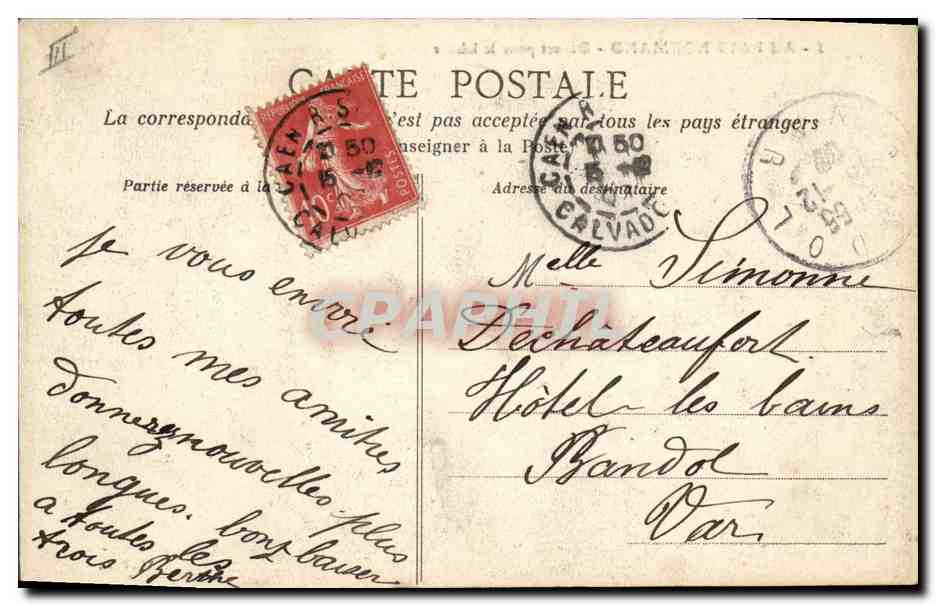 III
CARTE POSTALE
La corresponda 'est pas acceptée par tous les pays étrangers
nseigner à la Poste
Partie réservée à la
Adresse du destinataire
RÉPUBLIQUE FRANÇAISE
POSTES
10 c
CAEN R.S.
50
15
CALV
CAEN R
50
15
CALVADOS
BANDOL
CPAPHIL
je vous envoie
toutes mes amitiés
donnez nouvelles plus
longues. bons baiser
a toutes les
trois Berthe
Melle Simonne
Dechâteaufort
Hôtel les bains
Bandol
Var